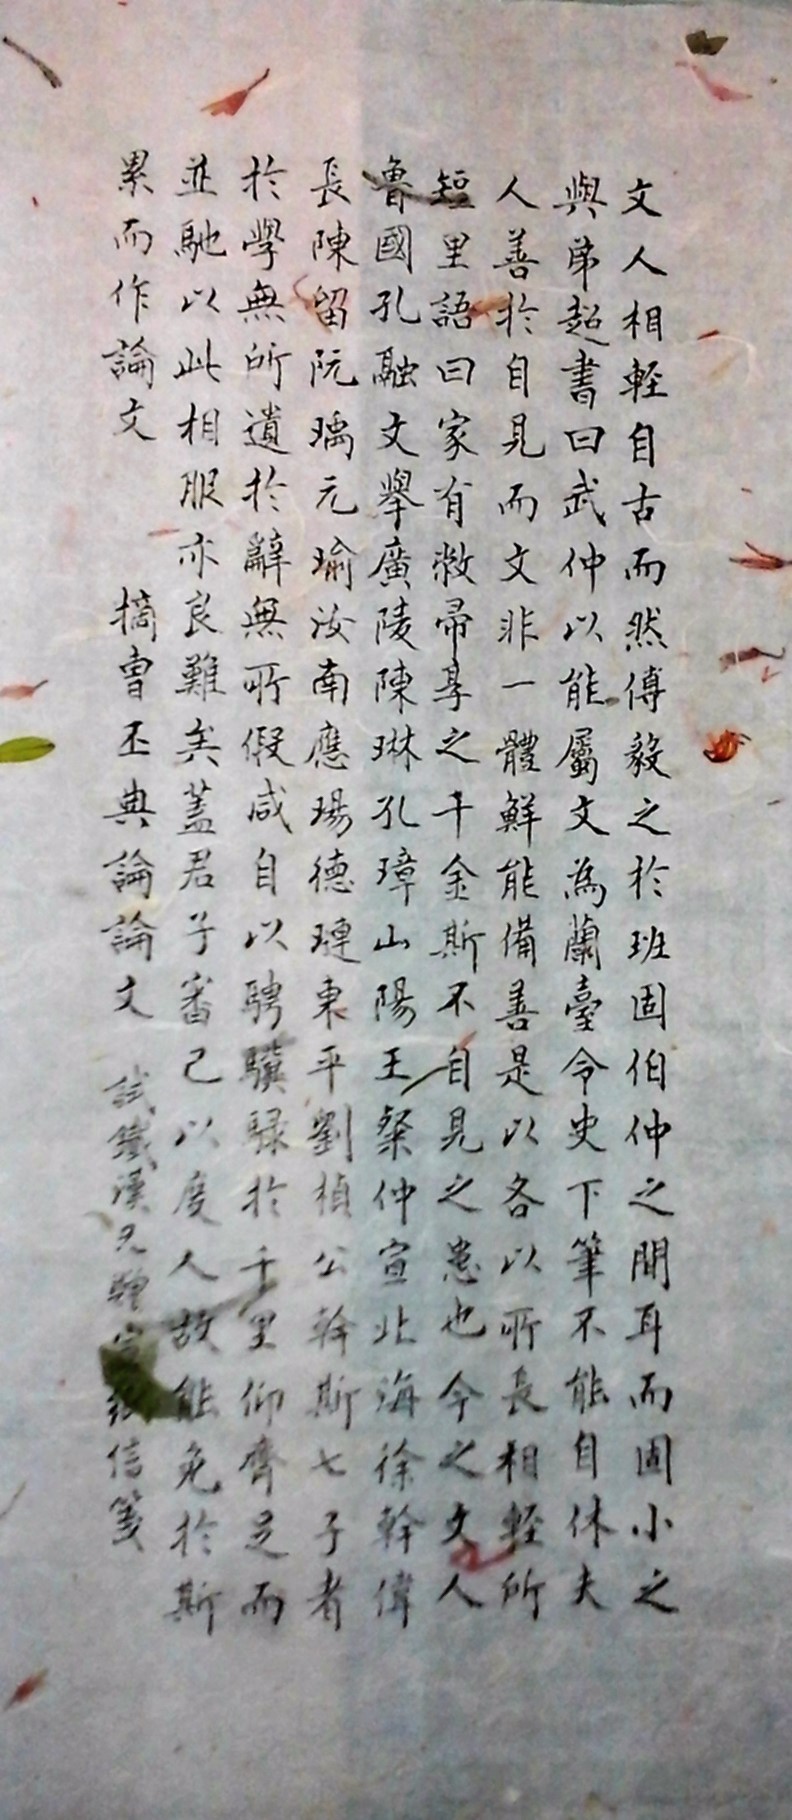 文人相輕自古而然傅毅之於班固伯仲之間耳而固小之
與弟超書曰武仲以能屬文為蘭臺令史下筆不能自休夫
人善於自見而文非一體鮮能備善是以各以所長相輕所
短里語曰家有敝帚享之千金斯不自見之患也今之文人
魯國孔融文舉廣陵陳琳孔璋山陽王粲仲宣北海徐幹偉
長陳留阮瑀元瑜汝南應瑒德璉東平劉楨公幹斯七子者
於學無所遺於辭無所假咸自以騁驥騄於千里仰齊足而
並馳以此相服亦良難矣蓋君子審己以度人故能免於斯
累而作論文 摘曹丕典論論文 試鐵漢兄贈信箋